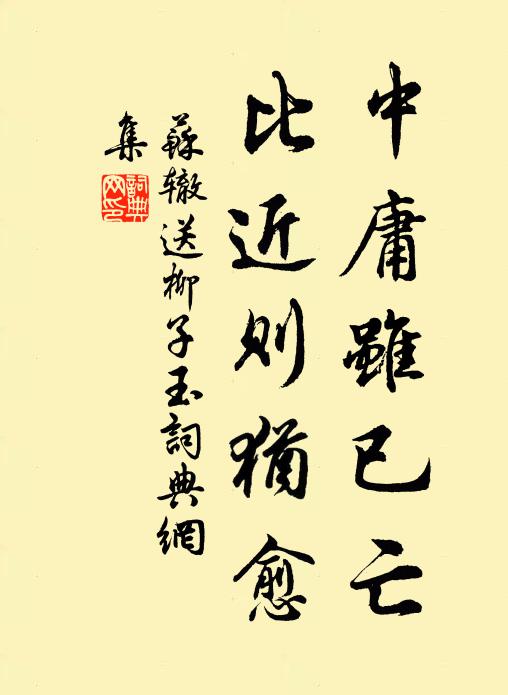 中庸雖已亡
比近則猶愈
蘇轍送柳子玉詞典網
集
詞典
网印